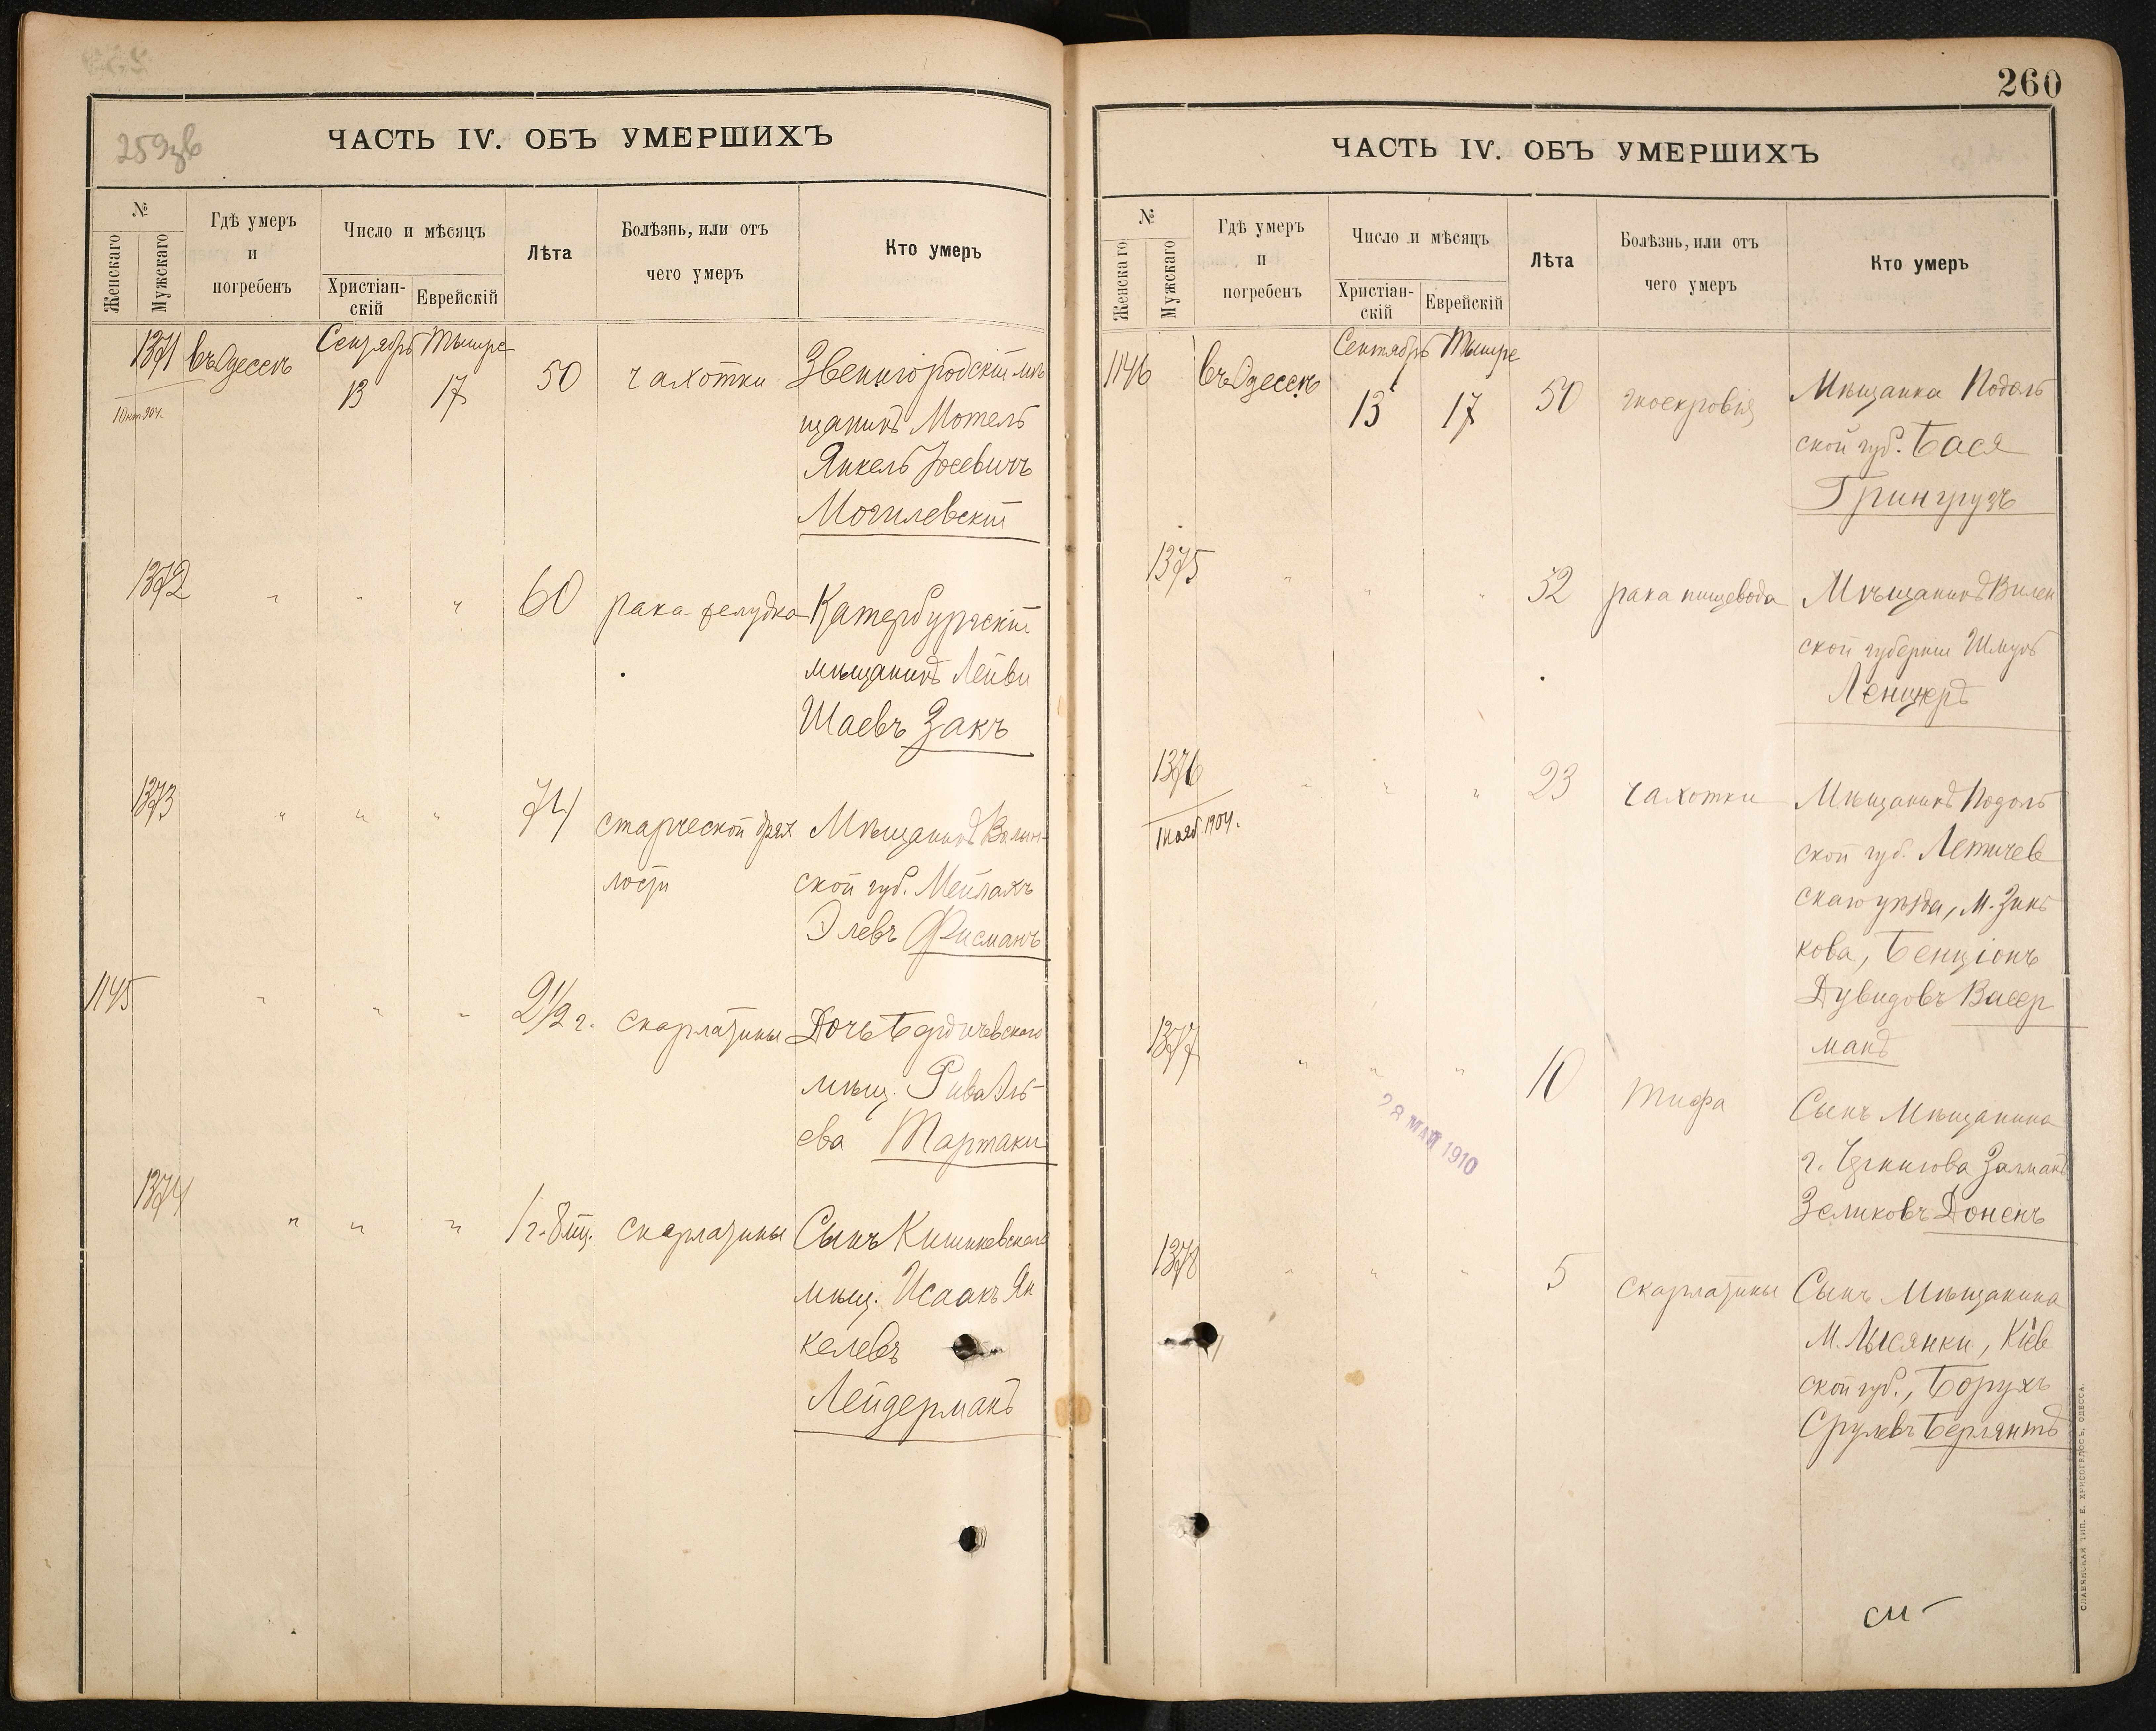 259зв
ЧАСТЬ IV. ОБЪ УМЕРШИХЪ
№
Женскаго
Мужскаго
Гдѣ умеръ
и
погребенъ
Число и мѣсяцъ
Христіан-
скій
Еврейскій
Лѣта
Болѣзнь, или отъ
чего умеръ
Кто умеръ
1371 въ Одессѣ Сентябрь Тышре
13 17 50 чахотки Звенигородскій мѣ
щанинъ Мотель
Янкель Іосевичъ
Могилевскій
1 Окт. 904.
1372 " " " 60 рака желудка Катербургскій
мѣщанинъ Лейви
Шаевъ Закъ
1373 " " " 74 старческой дрях
лости
Мѣщанинъ Волын-
ской губ. Мейлахъ
Элевъ Фисманъ
1145 " " " 2 1/2 г. скарлатины Дочь Бердичевскаго
мѣщ. Рива
ева Тартаки
1374 " " " 1 г. 8 мц. скарлатины Сынъ Кишиневскаго
мѣщ. Исаакъ Ян
келевъ
Лейдерманъ
260
ЧАСТЬ IV. ОБЪ УМЕРШИХЪ
№
Женскаго
Мужскаго
Гдѣ умеръ
и
погребенъ
Число и мѣсяцъ
Христіан-
скій
Еврейскій
Лѣта
Болѣзнь, или отъ
чего умеръ
Кто умеръ
1146 въ Одессѣ Сентябрь Тышре
13 17 50 гноекровія Мѣщанка Подоль
ской губ. Бася
Грингрузъ
1375 " " " 52 рака пищевода Мѣщанинъ Вилен
ской губерніи Шмуль
Ленцнеръ
1376 " " " 23 чахотки Мѣщанинъ Подоль
ской губ. Летичев
скаго уѣзда, М. Зинь
кова, Бенціонъ
Дувидовъ Васер
манъ
1 Нояб. 1904.
1377 " " " 10 тифа Сынъ Мѣщанина
г. Чернигова Залманъ
Зеликовъ Доненъ
28 МАЙ 1910
1378 " " " 5 скарлатины Сынъ Мѣщанина
М. Лысянки, Кіев
ской губ., Борухъ
Срулевъ Берлянтъ
СЛАВЯНСКАЯ ТИП. Е. ХРИСОГЕЛОСЪ, ОДЕССА.